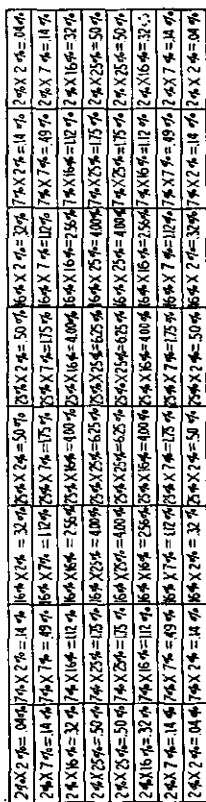 2%X 2%=.04% 7%X 2%=.14% 16%X 2%=.32% 25%X 2%=.50% 25%X 2%=.50% 16%X 2%=.32% 7%X 2%=.14% 2%X 2%=.04%
2%X 7%=.14% 7%X 7%=.49% 16%X 7%=1.12% 25%X 7%=1.75% 25%X 7%=1.75% 16%X 7%=1.12% 7%X 7%=.49% 2%X 7%=.14%
2%X16%=.32% 7%X16%=1.12% 16%X16%=2.56% 25%X16%=4.00% 25%X16%=4.00% 16%X16%=2.56% 7%X16%=1.12% 2%X16%=.32%
2%X25%=.50% 7%X25%=1.75% 16%X25%=4.00% 25%X25%=6.25% 25%X25%=6.25% 16%X25%=4.00% 7%X25%=1.75% 2%X25%=.50%
2%X25%=.50% 7%X25%=1.75% 16%X25%=4.00% 25%X25%=6.25% 25%X25%=6.25% 16%X25%=4.00% 7%X25%=1.75% 2%X25%=.50%
2%X16%=.32% 7%X16%=1.12% 16%X16%=2.56% 25%X16%=4.00% 25%X16%=4.00 16%X16%=2.56% 7%X16%=1.12% 2%X16%=.32%
2%X 7%=.14% 7%X 7%=.49% 16%X 7%=1.12% 25%X 7%=1.75% 25%X 7%=1.75% 16%X 7%=1.12% 7%X 7%=.49% 2%X 7%=.14%
2%X 2%=.04% 7%X 2%=.14% 16%X 2%=.32% 25%X 2%=.50% 25%X 2%=.50% 16%X 2%=.32% 7%X 2%=.14% 2%X 2%=.04%